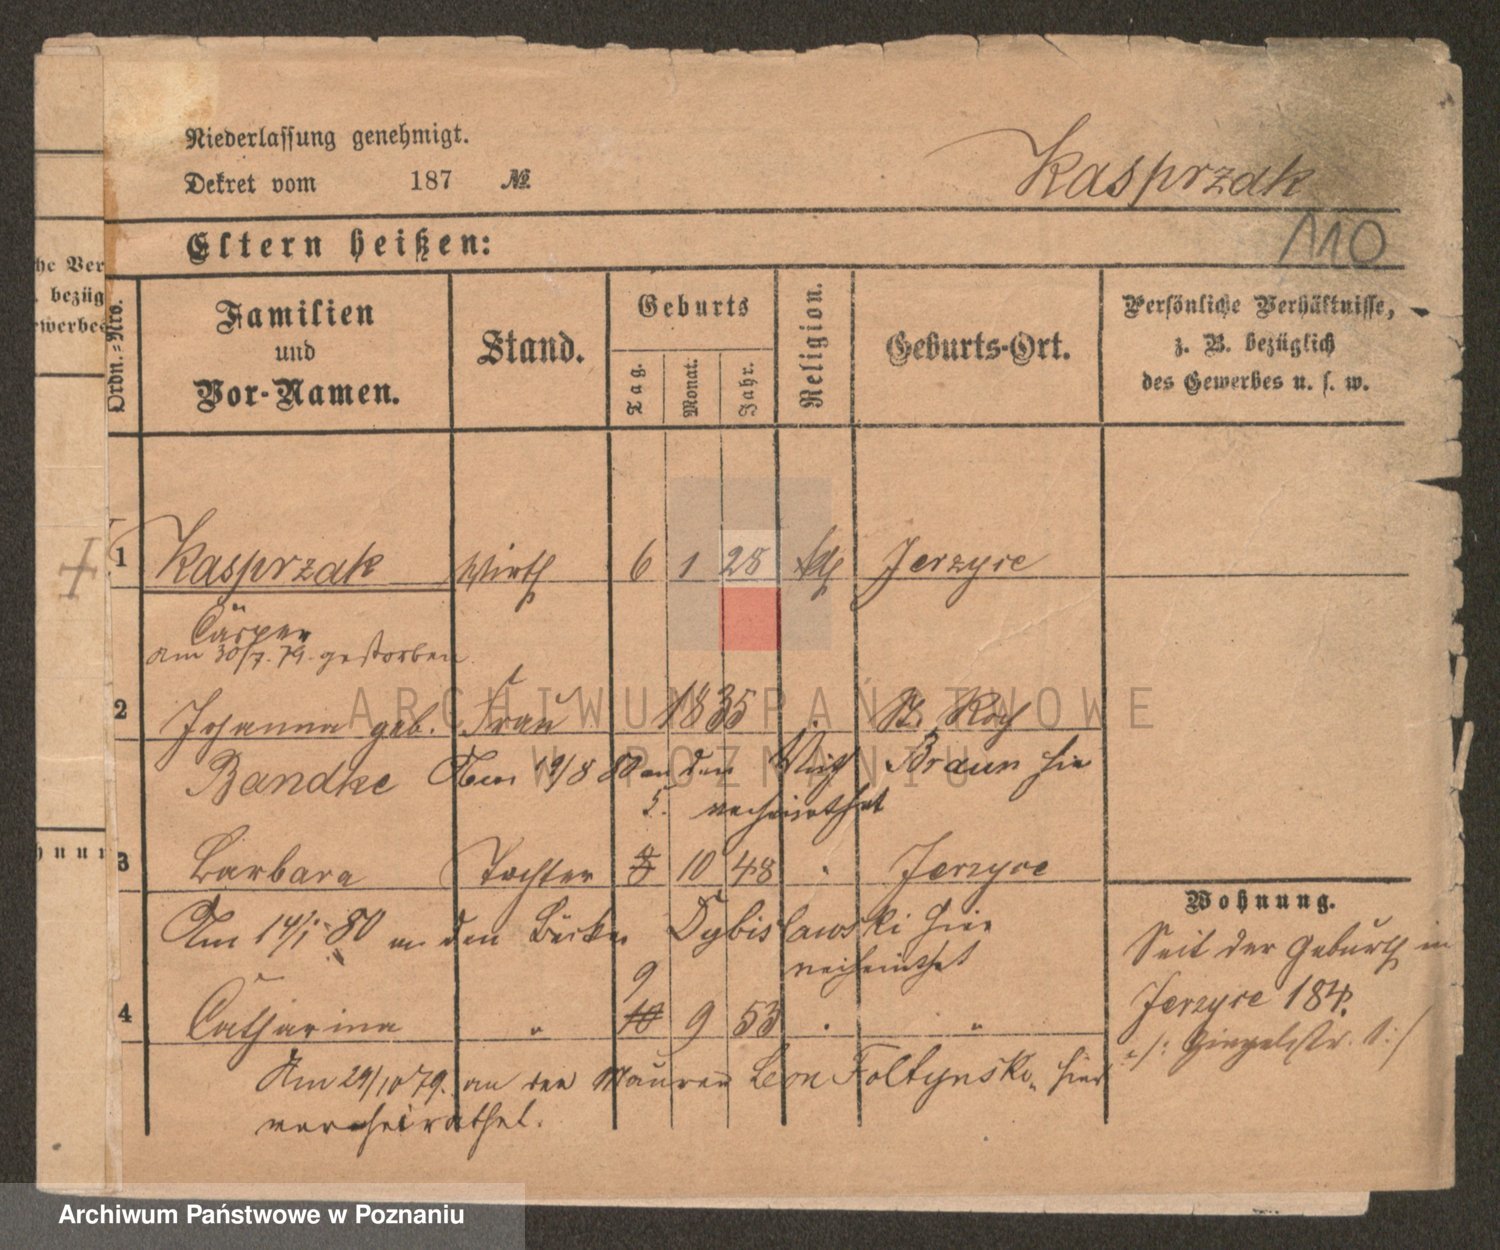 Niederlassung genehmigt.
Dekret vom 187 №
Kasprzak
110
Eltern heißen:
Ordn.-Nro.
Familien
und
Vor-Namen.
Stand.
Geburts
Tag.
Monat.
Jahr.
Religion.
Geburts-Ort.
Persönliche Verhältnisse,
z. B. bezüglich
des Gewerbes u. s. w.
he Ver
. bezüg
ewerbes
1 Kasprzak Wirth 6 1 28 kth Jerzyce
Casper
am 30/7. 79. gestorben
2 Johanna geb. Frau 1835 " Roch
Bandke Am 19/8 80 an den Braun hier
verheirathet
3 Barbara Tochter 5. 10 48 " Jerzyce
Am 14/1 80 an den Bäcker Dybislawski hier
verheirathet
4 Catharina " 9 9 53 " "
Am 29/10 79. an den Maurer Leon Foltynski hier
verheirathet.
Wohnung.
Seit der Geburth in
Jerzyce 184.
ARCHIWUM PAŃSTWOWE
W POZNANIU
Archiwum Państwowe w Poznaniu